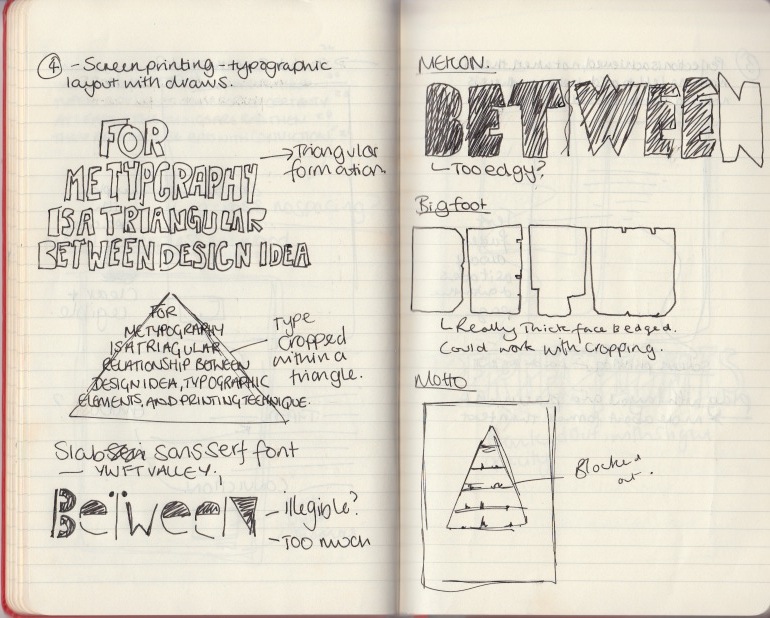 ④ - Screenprinting - typographic
layout with draws.
FOR
ME TYPGRAPHY
IS A TRIANGULAR
BETWEEN DESIGN IDEA
→ Triangular
formation.
FOR
ME TYPOGRAPHY
IS A TRIAGULAR
RELATIONSHIP BETWEEN
DESIGN IDEA, TYPOGRAPHIC
ELEMENTS, AND PRINTING TECHNIQUE.
Type
Cropped
within a
triangle.
Slab sans serf font
— YWFT VALLEY.
BetweeN
- illegible?
- TOO much
MEKON.
BETWEEN
Too edgy?
Bigfoot
Really Thick face & edged.
Could work with cropping.
MOTTO
Blocked
out.